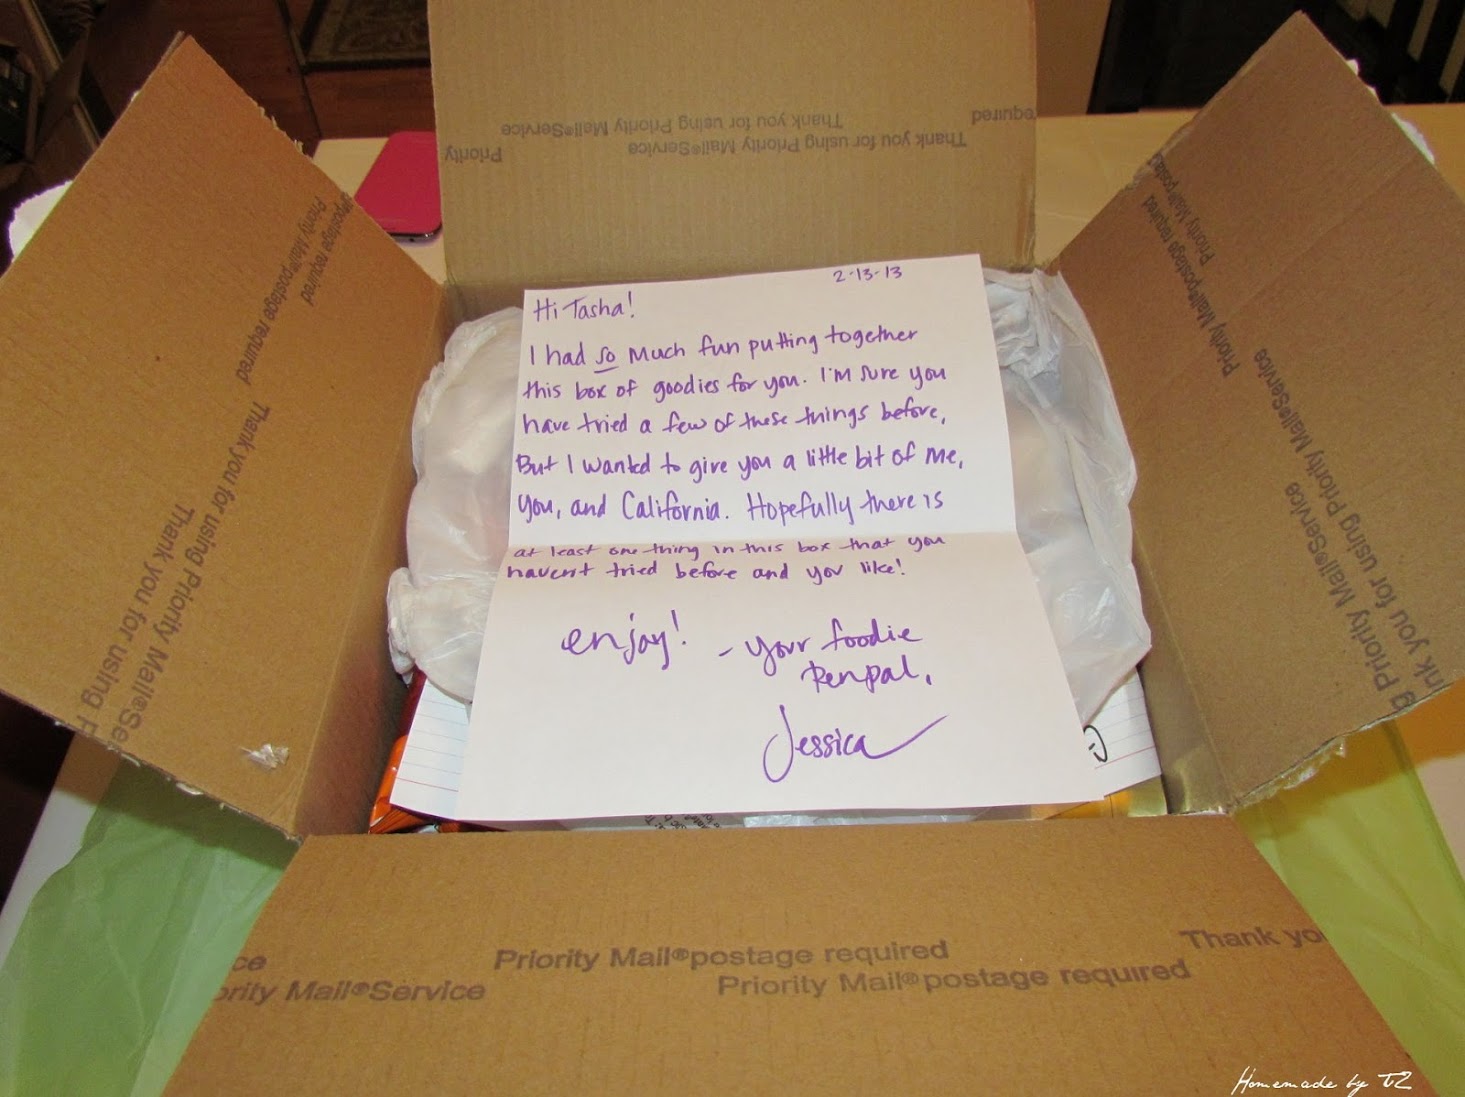 Thank you for using Priority Mail®Service
required
Priority
Thank you for using Priority Mail®Service
®postage required
Priority Mail®postage required
Thank you for using Priority Mail®Service
Thank you for using P
Priority Mail®postage
Priority Mail®postage required
Priority Mail®Service
2-13-13
Hi Tasha!
I had so much fun putting together
this box of goodies for you. I'm sure you
have tried a few of these things before,
But I wanted to give you a little bit of me,
you, and California. Hopefully there is
at least one thing in this box that you
havent tried before and you like!
enjoy!
- your foodie
Penpal,
Jessica
Priority Mail®postage required
Thank yo
ce
ority Mail®Service
Priority Mail®postage required
Homemade by T2